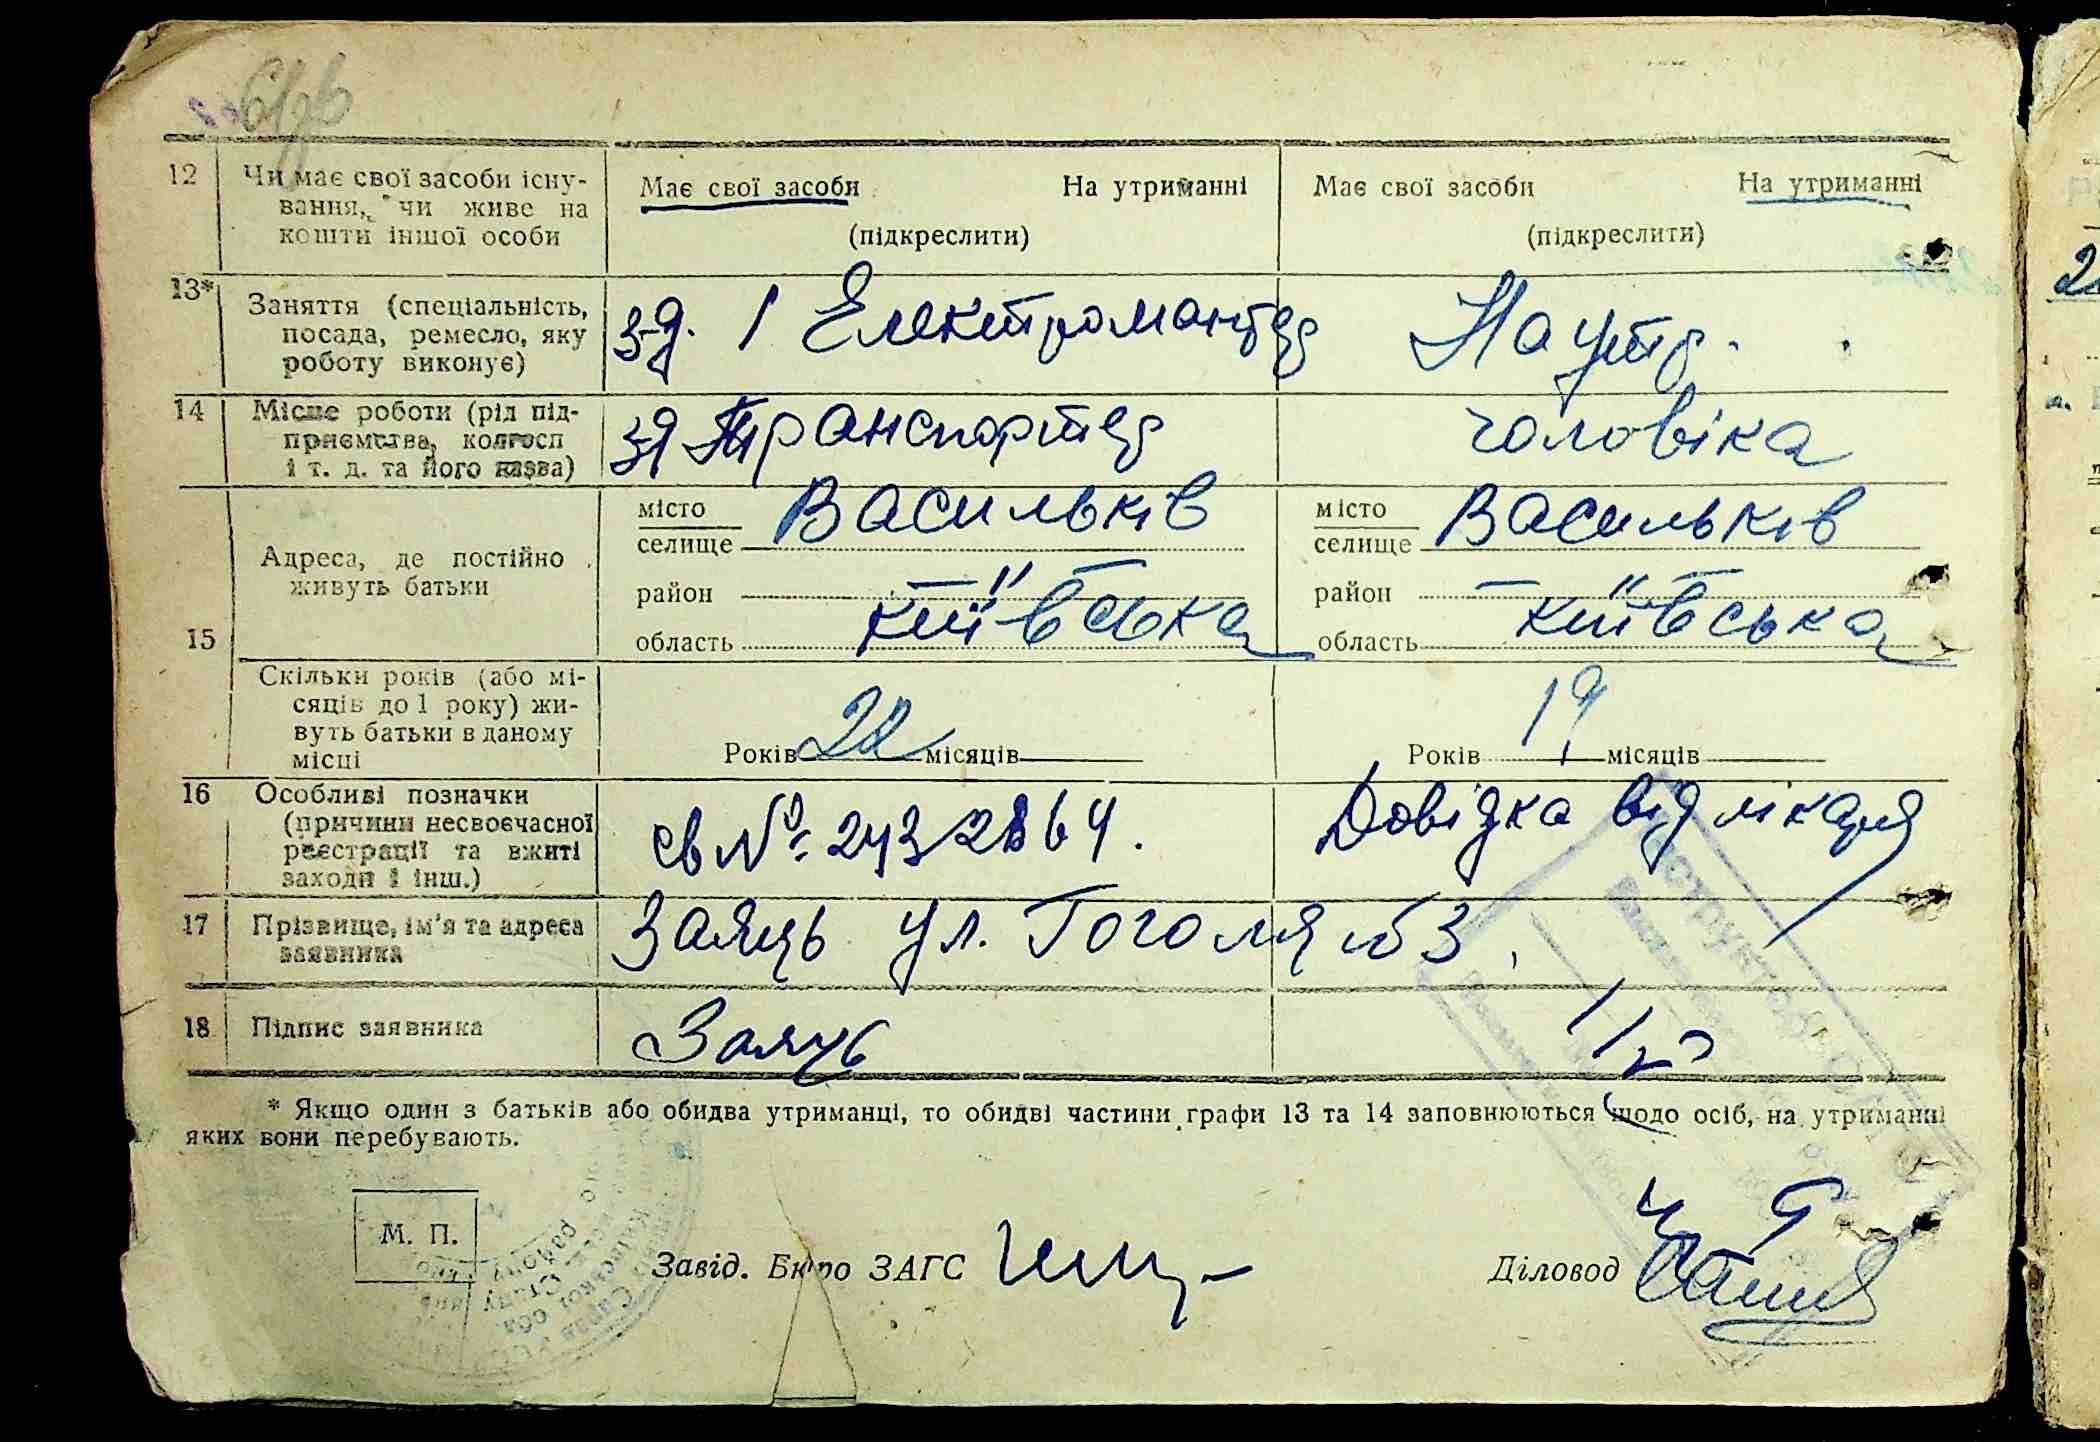 12 Чи має свої засоби існу-
вання, чи живе на
кошти іншої особи
Має свої засоби На утриманні
(підкреслити)
Має свої засоби На утриманні
(підкреслити)
13* Заняття (спеціальність,
посада, ремесло, яку
роботу виконує)
з-д. 1 Електромантер
На утр.
14 Місце роботи (рід під-
приємства, колгосп
і т. д. та його назва)
з-д Транспортер
чоловіка
15 Адреса, де постійно
живуть батьки
місто
селище Васильків
район —"—
область київська
місто
селище Васильків
район —"—
область київська
Скільки років (або мі-
сяців до 1 року) жи-
вуть батьки в даному
місці
Років 22 місяців
Років 19 місяців
16 Особливі позначки
(причини несвоєчасної
реєстрації та вжиті
заходи і інш.)
св № 2432864.
Довідка від лікаря
17 Прізвище, ім'я та адреса
заявника
Заяць ул. Гоголя №53.
18 Підпис заявника
Заяць
* Якщо один з батьків або обидва утриманці, то обидві частини графи 13 та 14 заповнюються щодо осіб, на утриманні
яких вони перебувають.
М. П.
Завід. Бюро ЗАГС
Діловод